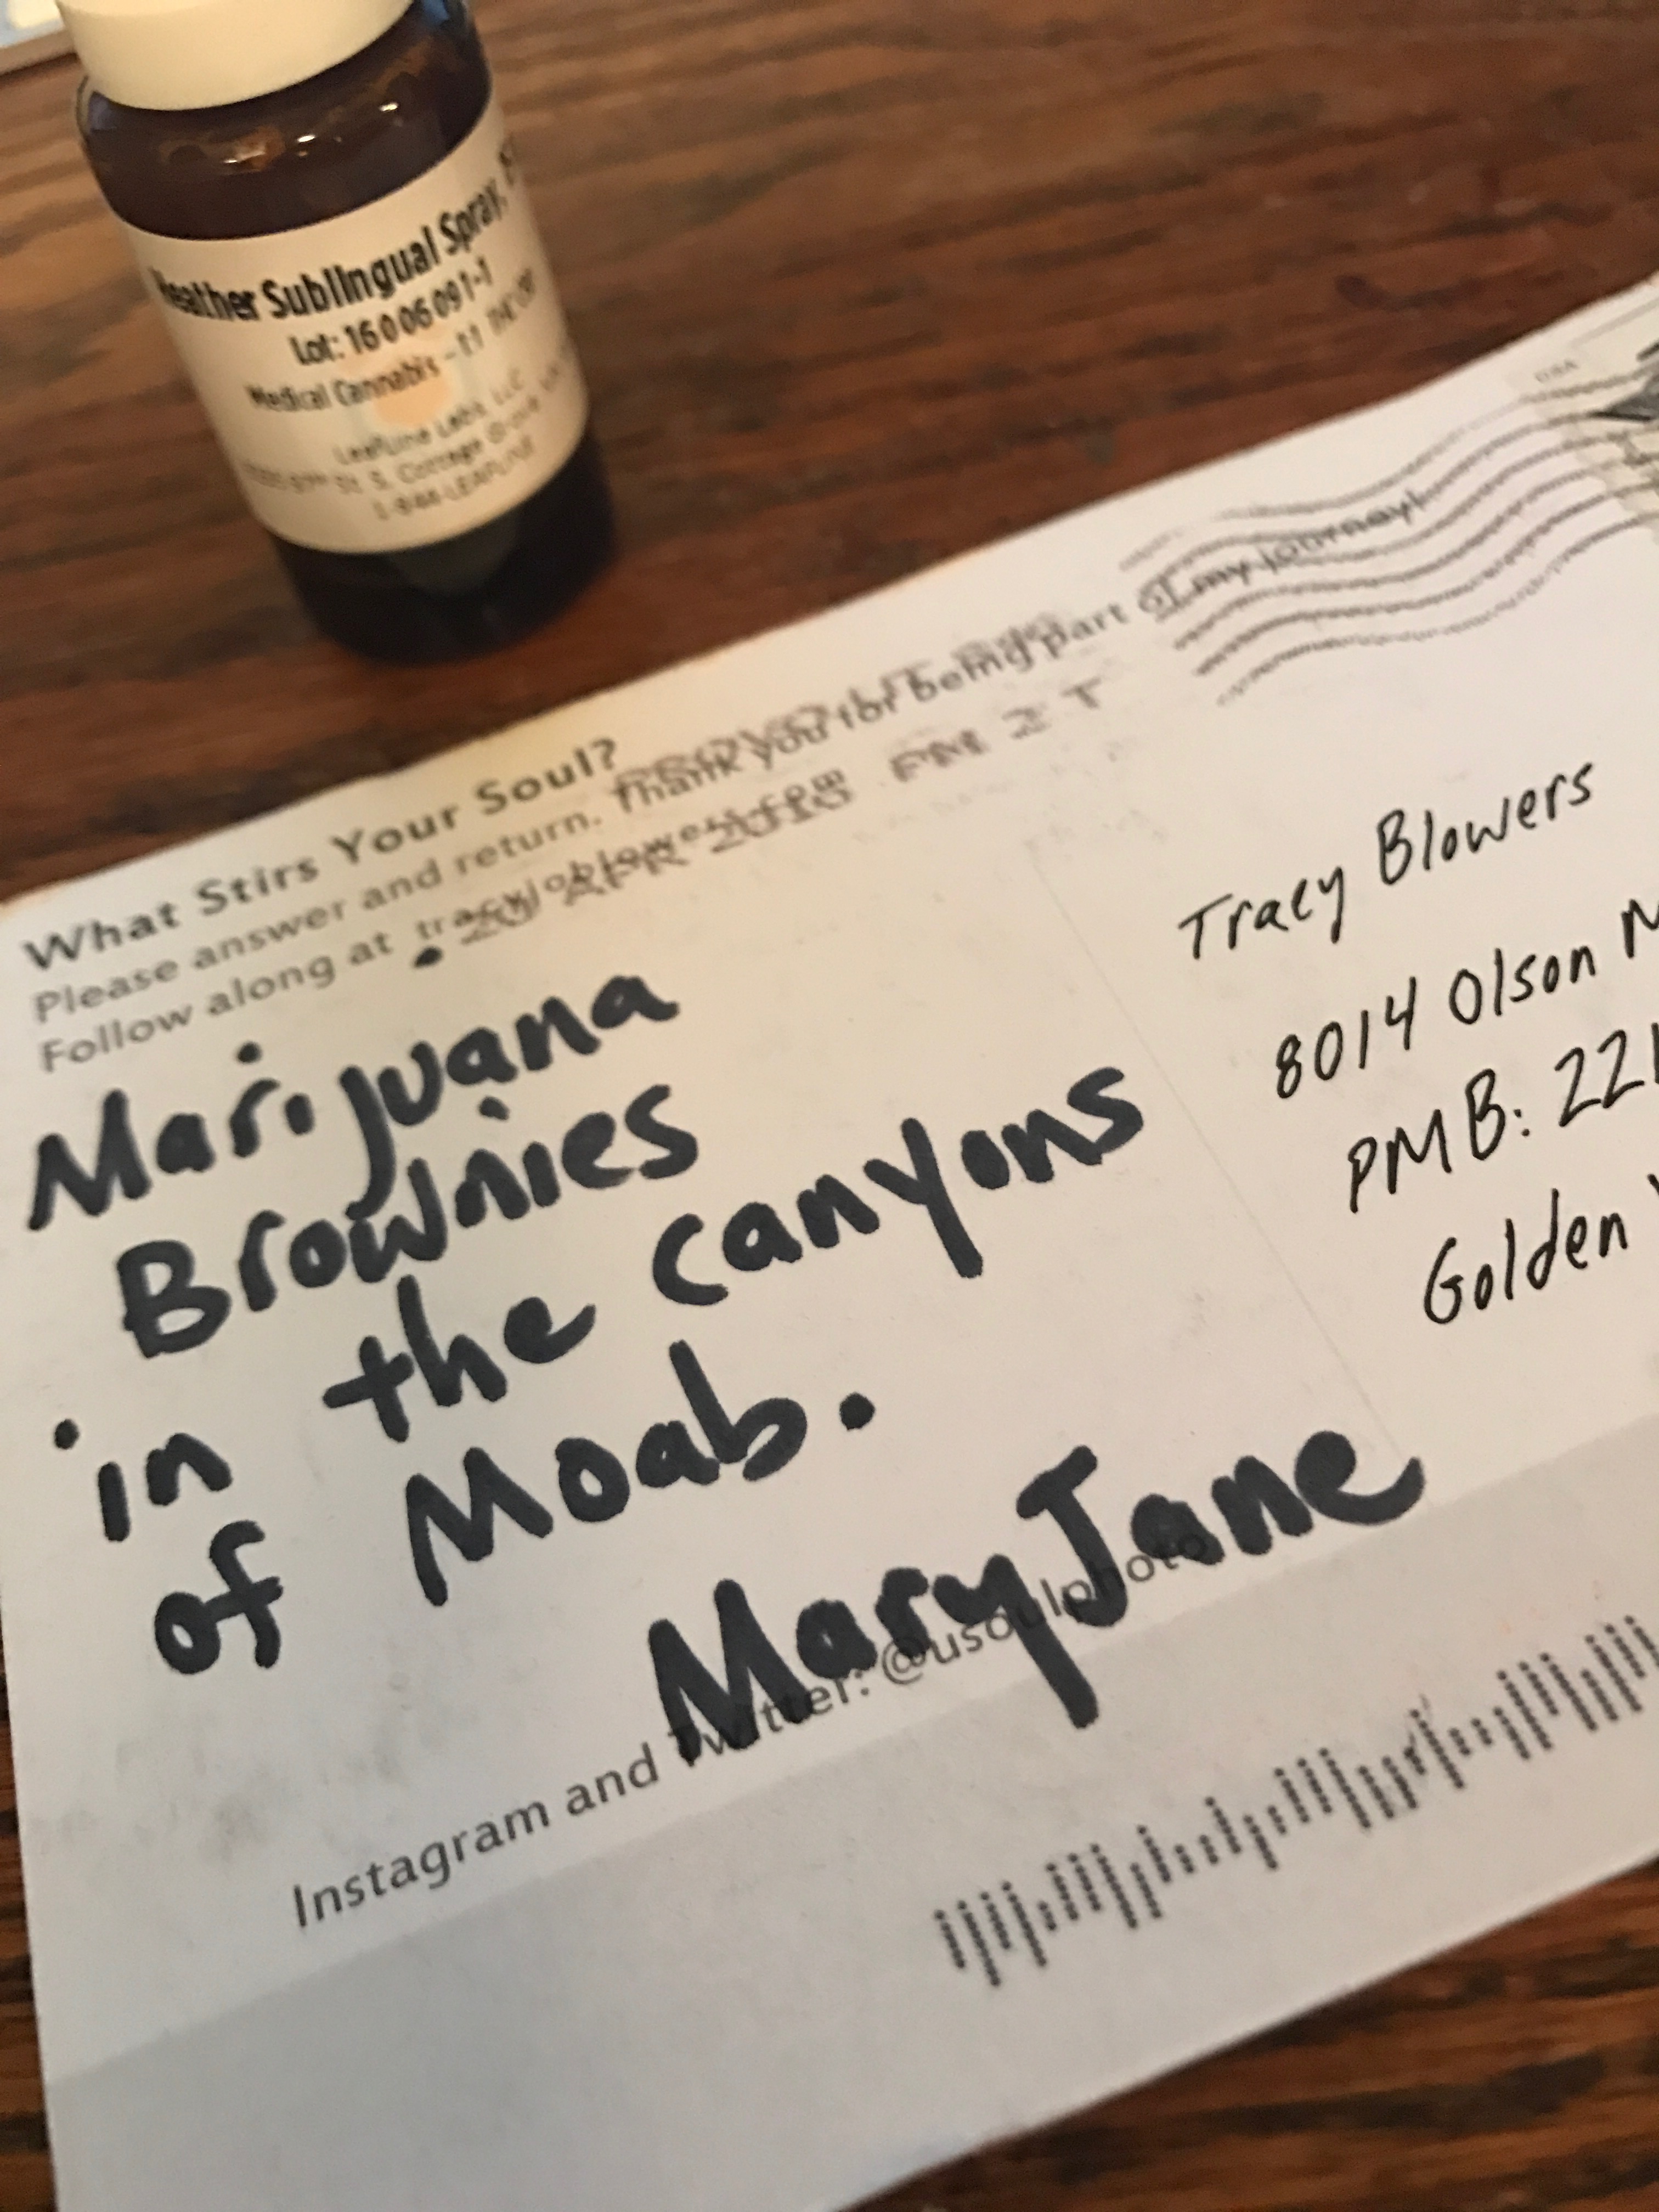 Heather Sublingual Spray,
Lot: 16006091-1
Medical Cannabis - 1:1 THC:CBD
LeafLine Labs, LLC
St. S. Cottage Grove
1-844-LEAFLINE
What Stirs Your Soul?
Please answer and return. Thank you for being part of my journey!
Follow along at
APR 2018 PM 2 T
Marijuana
Brownies
in the canyons
of Moab.
Mary Jane
Instagram and Twitter: @usoulphoto
Tracy Blowers
8014 Olson
PMB: 221
Golden